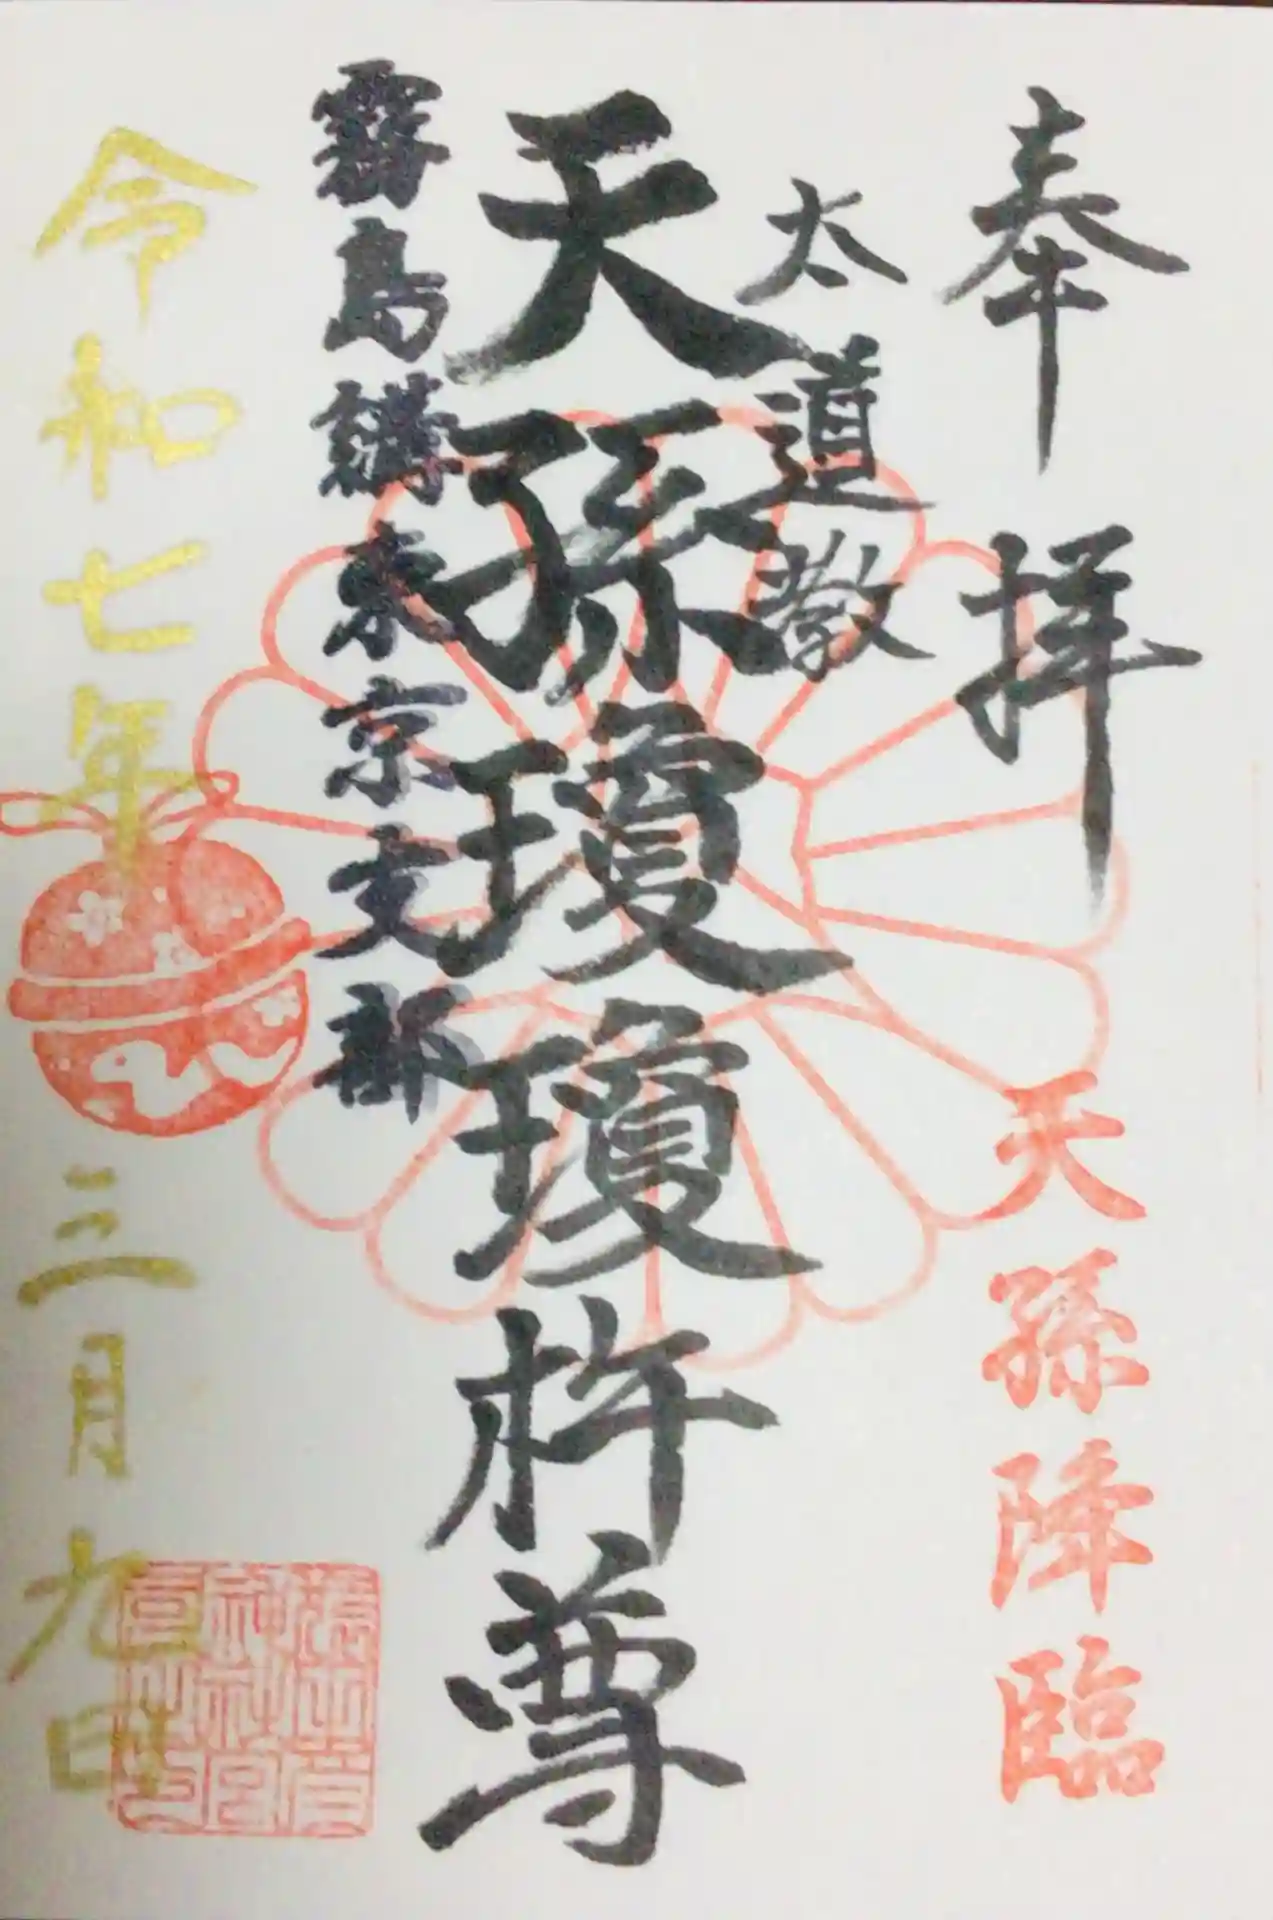 奉拝
天孫降臨
太道教
天孫瓊瓊杵尊
霧島講東京支部
令和七年三月九日